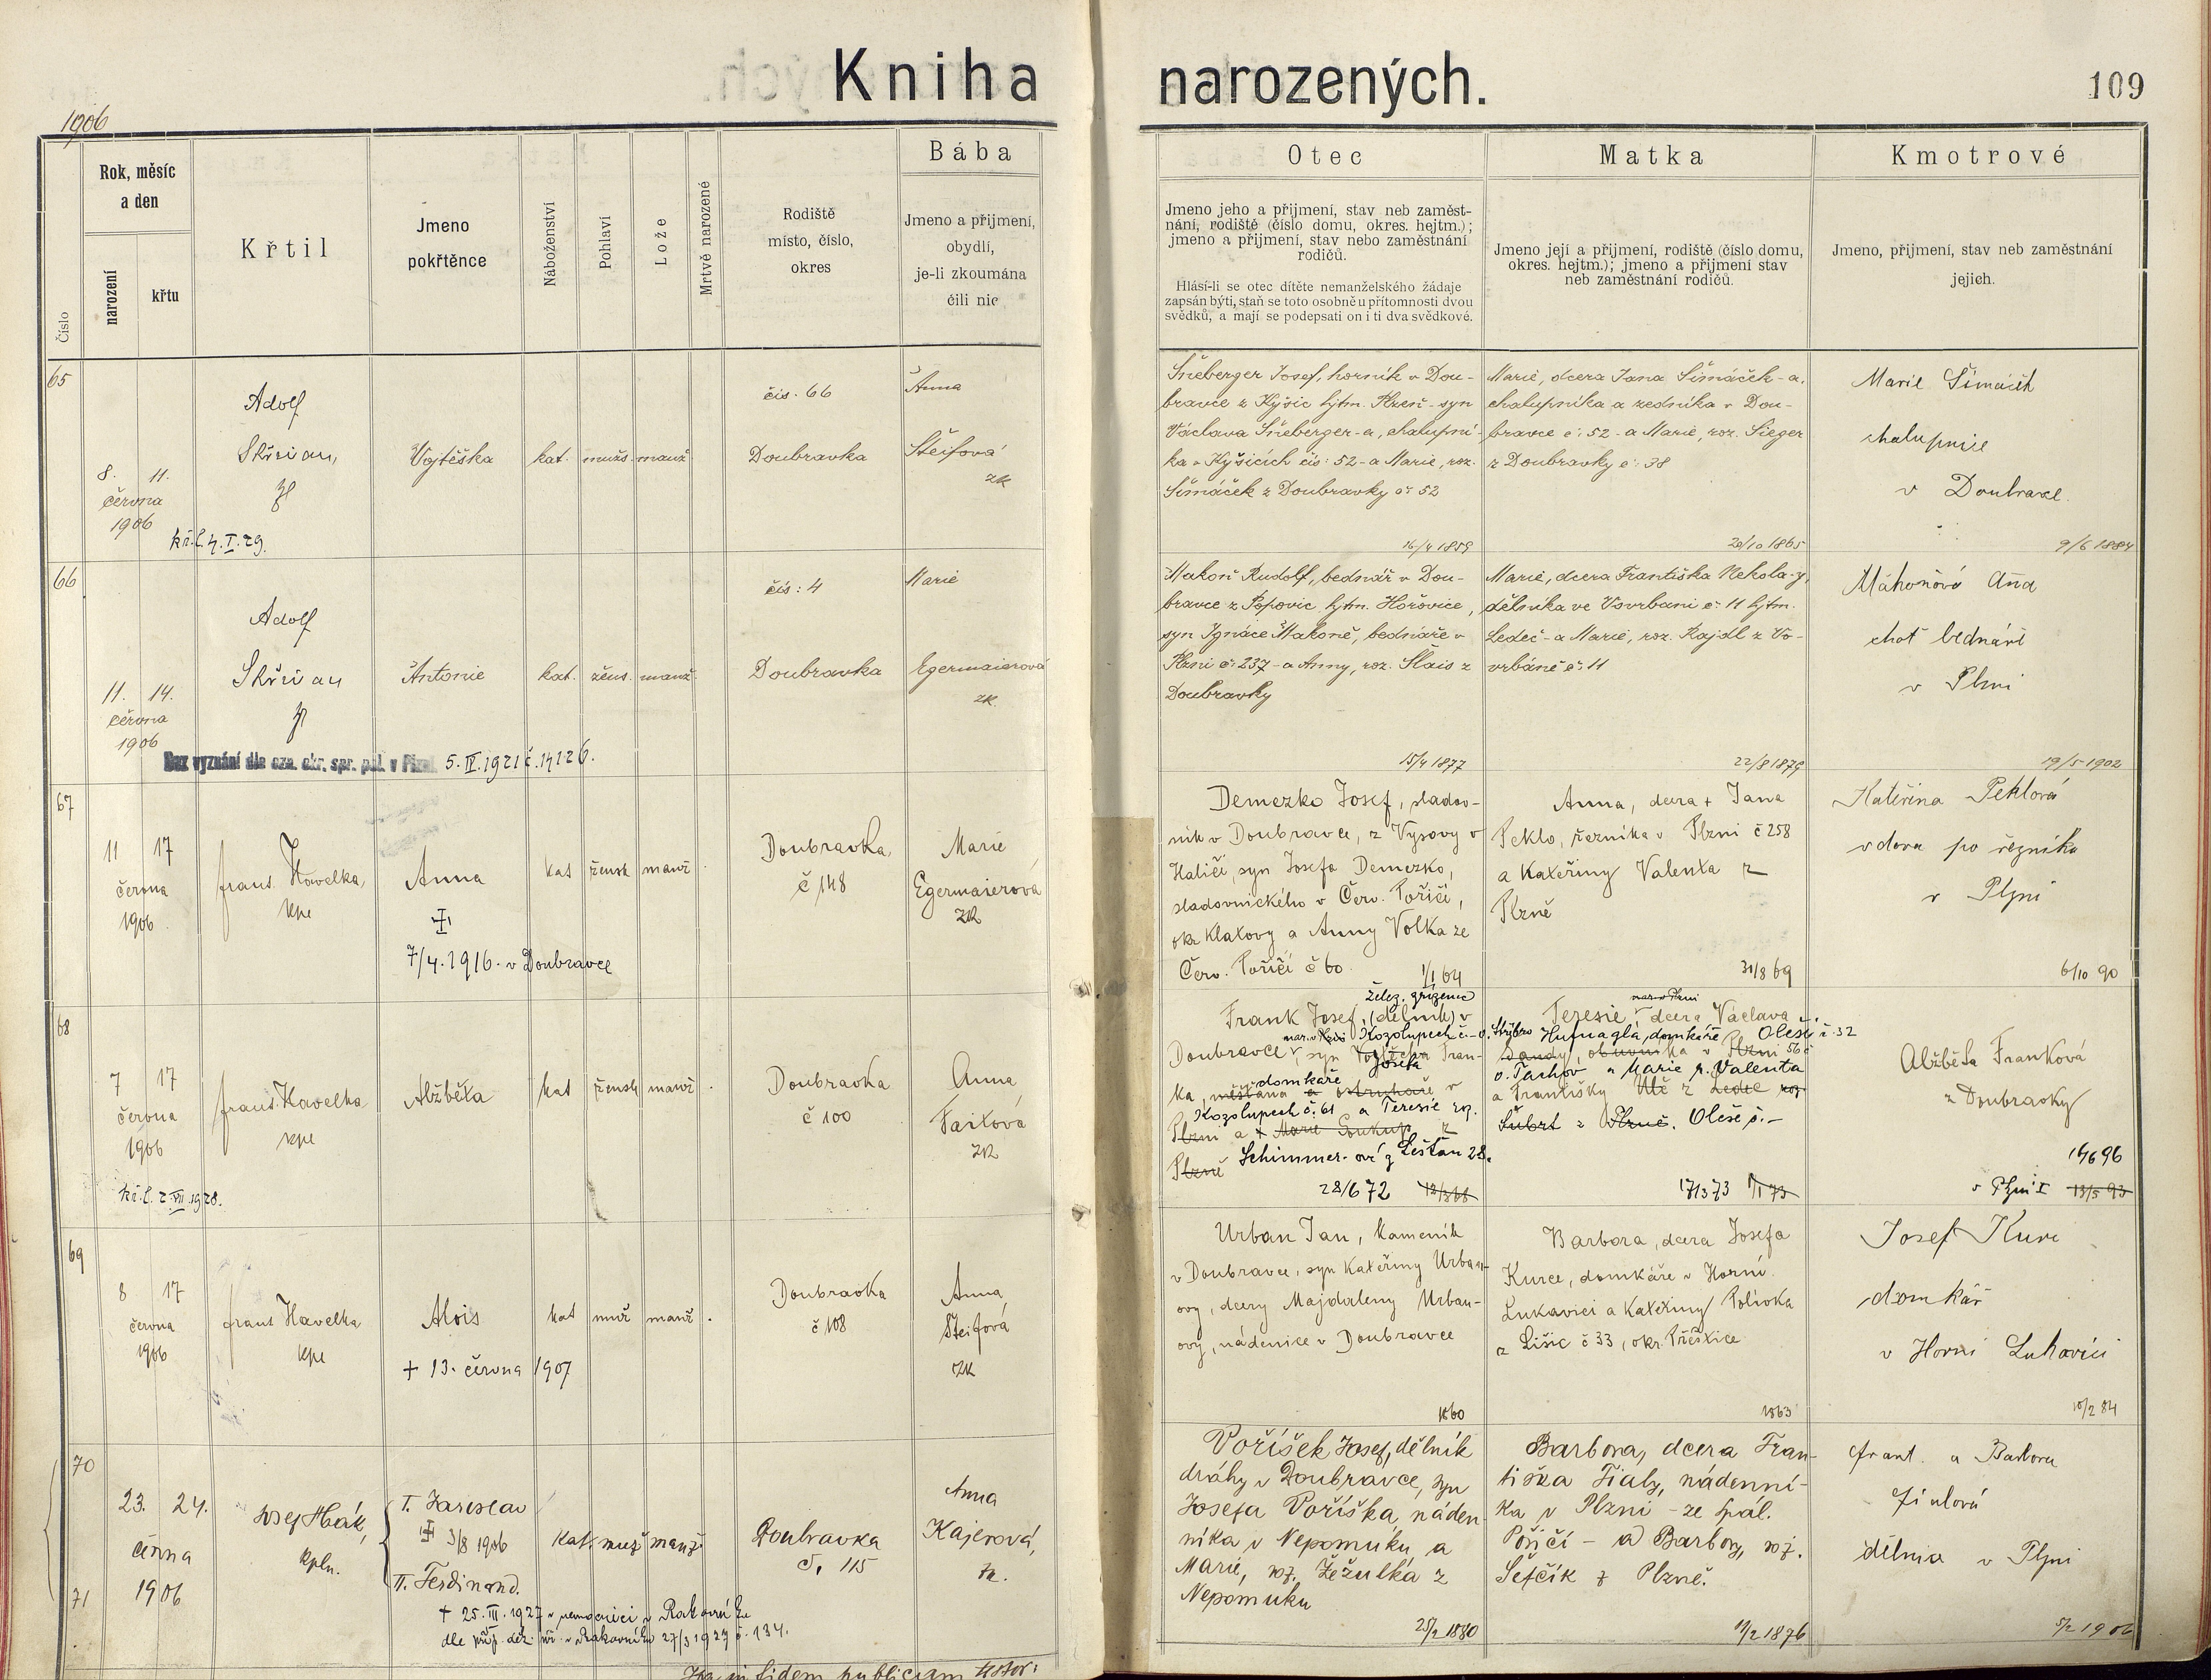 Kniha narozených.
109
1906
Číslo
Rok, měsíc
a den
narození
křtu
Křtil
Jmeno
pokřtěnce
Náboženství
Pohlaví
Lože
Mrtvě narozené
Rodiště
místo, číslo,
okres
Bába
Jmeno a přijmení,
obydlí,
je-li zkoumána
čili nic
Otec
Jmeno jeho a přijmení, stav neb zaměst-
nání, rodiště (číslo domu, okres. hejtm.);
jmeno a přijmení, stav nebo zaměstnání
rodičů.
Hlásí-li se otec dítěte nemanželského žádaje
zapsán býti, staň se toto osobně u přítomnosti dvou
svědků, a mají se podepsati on i ti dva svědkové.
Matka
Jmeno její a přijmení, rodiště (číslo domu,
okres. hejtm.); jmeno a přijmení stav
neb zaměstnání rodičů.
Kmotrové
Jmeno, přijmení, stav neb zaměstnání
jejich.
65
8. 11.
června
1906
kř. l. 4. I. 29.
Adolf
Skřivan,
Vojtěška
kat.
mužs.
manž.
čís. 66
Doubravka
Anna
Šteifová
zk
Šneberger Josef, horník v Dou-
bravce z Kyšic hjtm. Plzeň - syn
Václava Šneberger-a, chalupní-
ka v Kyšicích čís: 52 - a Marie, roz.
Šimáček z Doubravky č: 52
16/4 1859
Marie, dcera Jana Šimáček-a,
chalupníka a zedníka v Dou-
bravce č: 52 - a Marie, roz. Sieger
z Doubravky č: 38
20/10 1865
Marie
chalupnice
v Doubravce
9/6 1884
66
11. 14.
června
1906
Adolf
Skřivan
Antonie
kat.
žens.
manž.
čís: 4
Doubravka
Marie
Egermaierová
zk.
Bez vyznání dle ozn. okr. spr. pol. v Plzni 5. IV. 1921 č. 14126.
Makoň Rudolf, bednář v Dou-
bravce z Popovic hjtm. Hořovice,
syn Ignáce Makoně, bednáře v
Plzni č: 237 - a Anny, roz. Šlais z
Doubravky
15/4 1877
Marie, dcera Františka Nekola-y,
dělníka ve Vovrbani č: 11 hjtm.
Ledeč - a Marie, roz. Rajdl z Vo-
vrbáně č: 11
22/8 1879
Máhoňová Anna
choť bednáře
v Plzni
19/5 1902
67
11 17
června
1906
frant. Havelka,
kpe
Anna
7/4. 1916. v Doubravce
kat
žensk
manž
Doubravka,
č 148
Marie
Egermaierová
zk
Demezko Josef, sladov-
ník v Doubravce, z Vysovy v
Haliči, syn Josefa Demezko,
sladovnického v Červ. Poříčí,
okr Klatovy a Anny Volka ze
Červ. Poříčí č 60.
1/1 64
Anna, dcera + Jana
Peklo, řezníka v Plzni č 258
a Kateřiny Valenta z
Plzně
31/8 69
Kateřina Peklová
vdova po řezníku
v Plzni
6/10 90
68
7 17
června
1906
kř. l. 2. VII. 1928.
frant. Havelka
kpe
Alžběta
kat
žensk
manž
Doubravka
č 100
Anna
Faitová
zk
želez. zřízenec
Frank Josef, (dělník) v
nar. v Kozolupech č.- o. Stříbro
Doubravce, syn Vojtěcha Fran-
Josefa
domkáře
ka, měšťana a ostruhaře v
Kozolupech č. 61 a Terezie roz.
Plzni a + Marie Soukup z
Plzně Schimmer-ové z Lešťan 28.
28/6 72 12/3 68
nar. v Plzni
Terezie dcera Václava
Hufnagla, domkáře, Oleší č. 32
Dandy, obuvníka v Plzni
o. Tachov a Marie r. Valenta
a Františky Uč z Ledec roz
Šubrt z Plzně. Oleše č.-
17/3 73 1/1 73
Alžběta Franková
z Doubravky
14/6 96
v Plzni I 13/5 93
69
8 17
června
1906
frant Havelka
kpe
Alois
+ 13. června 1907
kat
muž
manž
Doubravka
č 108
Anna
Šteifová
zk
Urban Jan, kameník
v Doubravce, syn Kateřiny Urban-
ovy, dcery Majdaleny Urban-
ovy, nádenice v Doubravce
1860
Barbora, dcera Josefa
Kurce, domkáře v Horní
Lukavici a Kateřiny Polívka
z Lišic č 33, okr. Přeštice
1863
Josef Kurc
domkář
v Horní Lukavici
10/2 84
70
71
23. 24.
června
1906
Josef Hák,
kpln.
I. Jaroslav
3/8 1906
II. Ferdinand.
+ 25. III. 1927 v nemocnici v Rakovníku
dle příp. děk. úř. v Rakovníku 27/3 1927 č. 134.
kat.
muž
manž.
Doubravka
č. 115
Anna
Kajerová,
zk.
Voříšek Josef, dělník
dráhy v Doubravce, syn
Josefa Voříška, náden-
níka v Nepomuku a
Marie, roz. Žežulka z
Nepomuku
25/2 1880
Barbora, dcera Fran-
tiška Fialy, nádenní-
ka v Plzni - ze Spál.
Poříčí - a Barbory, roz.
Šefčík z Plzně.
11/2 1876
frant. a Barbora
Fialová
dělníci v Plzni
5/2 1906
in fidem publicam